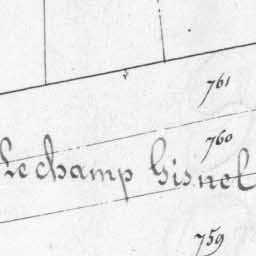 761
760
le champ Gisnel
759